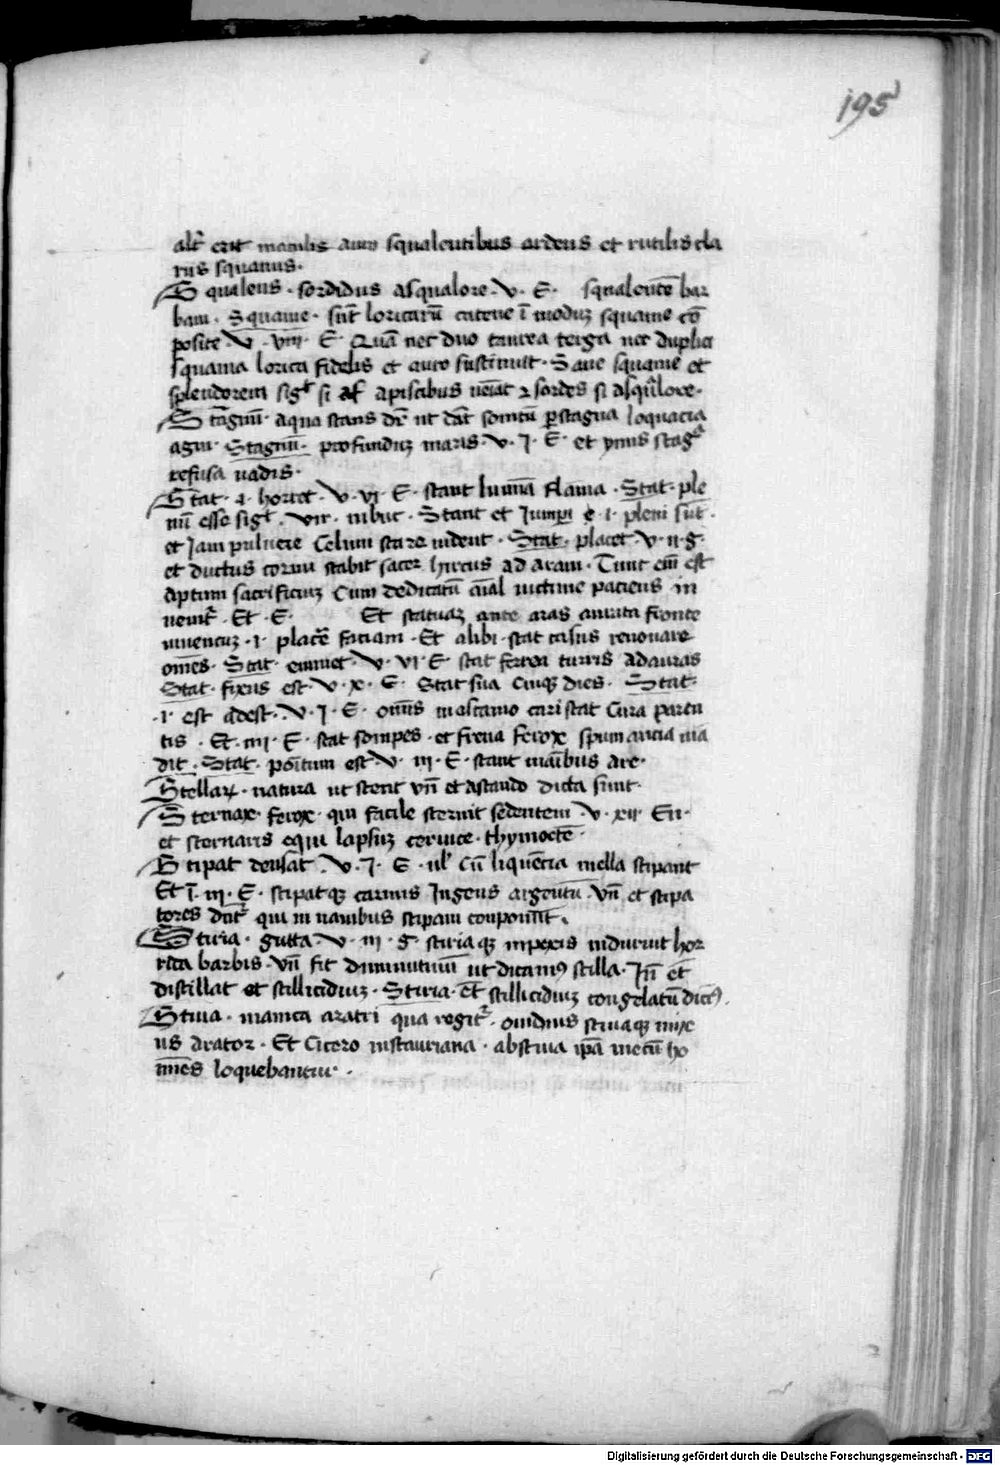 195
alt̄ erit maculis auro squalentibus ardens et rutilis cla
rus squamis.
Squalens. sordidus a squalore. V. E. squalentē bar
bam. Squame. sūt loricarū catene ī moduȝ squame cō
posite V. VIII. E. Quā nec duo taurea terga nec duplici
squama lorica fidelis et auro sustinuit. Sane squame et
splendorem sigt̄ si a piscibus ueiāt ⁊ sordes si a squalore.
Stagnū. aqua stans dr̄ ut dāt sonitū p stagna loquacia
agni. Stagnū. profunduȝ maris. V. I. E. et ymis stag
refusa uadis.
Stat. i. horret. V. VI. E. stant lumīa flama. Stat. ple
nū esse sigt̄. Vir. nibut. Stant et Iunipi e. i. pleni sūt.
et Iam puluere Celum stare uident. Stat. placet. V. II. G.
et ductus cornu stabit sacer hircus ad aram. Tunc em̄ est
aptum sacrificiuȝ Cum dedicatū aīal uictime paciens in
uenit̄. Et. E. Et statuaȝ ante aras aurata fronte
iuuencuȝ. i. placēre faciam. Et alibi. stat casus renouare
omēs. Stat. eminet. V. VI. E stat ferrea turris ad auras
Stat. fixus est. V. X. E. Stat sua cuiqȝ dies. Stat.
.i. est adest. V. I. E. omīs in ascanio cari stat Cura paren
tis. Et. IIII. E. stat sompes. et frena ferox spumancia mā
dit. Stat. positum est V. III. E. stant manibus are.
Stellaȝ. natura ut sterit vn̄ et astando dicta sunt.
Sternax. ferox. qui facile sternit sedentem V. XII. En.
et sternaris equi lapsuȝ ceruice. thymoetē.
Stipat densat. V. I. E. ul' cū liquencia mella stipant
Et ī. III. E. stipatqȝ carinis Ingens argentū. Vn̄ et stipa
tores dnt̄ qui in nauibus stipam componūt.
Stiria. gutta. V. III. G. stiriaqȝ inpexis induruit hor
rida barbis. Vn̄ fit diminutiuū ut dicamꝰ stilla. In̄ et
distillat et stillicidiuȝ. Stiria. ēt stillicidiuȝ congelatū dicimꝰ.
Stiua. manica aratri qua regit̄. ouidius stiuaqȝ inixe
us arator. Et Cicero in stauriana. abstiua ip̄a mecū ho
mīes loquebantur.
Digitalisierung gefördert durch die Deutsche Forschungsgemeinschaft - DFG